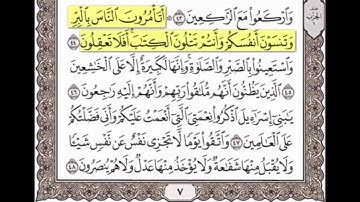 وَٱرْكَعُوا۟ مَعَ ٱلرَّٰكِعِينَ ٤٣ أَتَأْمُرُونَ ٱلنَّاسَ بِٱلْبِرِّ
وَتَنسَوْنَ أَنفُسَكُمْ وَأَنتُمْ تَتْلُونَ ٱلْكِتَٰبَ ۚ أَفَلَا تَعْقِلُونَ ٤٤
وَٱسْتَعِينُوا۟ بِٱلصَّبْرِ وَٱلصَّلَوٰةِ ۚ وَإِنَّهَا لَكَبِيرَةٌ إِلَّا عَلَى ٱلْخَٰشِعِينَ
٤٥ ٱلَّذِينَ يَظُنُّونَ أَنَّهُم مُّلَٰقُوا۟ رَبِّهِمْ وَأَنَّهُمْ إِلَيْهِ رَٰجِعُونَ ٤٦
يَٰبَنِىٓ إِسْرَٰٓءِيلَ ٱذْكُرُوا۟ نِعْمَتِىَ ٱلَّتِىٓ أَنْعَمْتُ عَلَيْكُمْ وَأَنِّى فَضَّلْتُكُمْ
عَلَى ٱلْعَٰلَمِينَ ٤٧ وَٱتَّقُوا۟ يَوْمًا لَّا تَجْزِى نَفْسٌ عَن نَّفْسٍ شَيْـًٔا
وَلَا يُقْبَلُ مِنْهَا شَفَٰعَةٌ وَلَا يُؤْخَذُ مِنْهَا عَدْلٌ وَلَا هُمْ يُنصَرُونَ ٤٨
٧